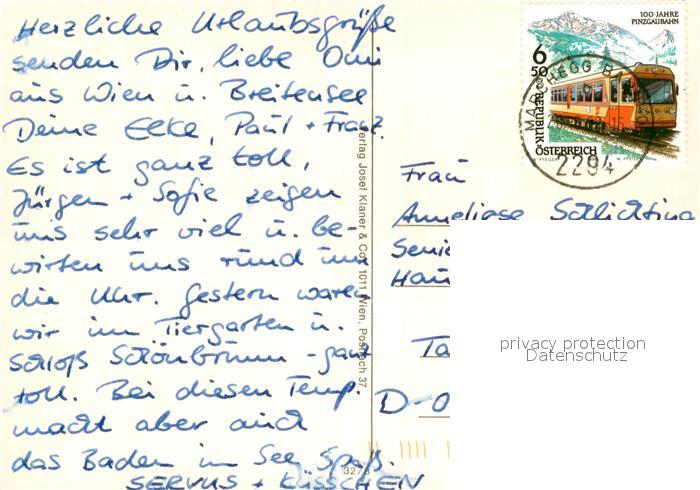 Herzliche Urlaubsgrüße
senden Dir, liebe Omi
aus Wien u. Breitensee
Deine Ecke, Paul + Franz.
Es ist ganz toll,
Jürgen + Sofie zeigen
uns sehr viel u. be-
wirten uns rund um
die Uhr. Gestern waren
wir im Tiergarten u.
Schloß Schönbrunn - ganz
toll. Bei diesen Temp.
macht aber auch
das Baden im See Spaß.
SERVUS + KÜSSCHEN
Verlag Josef Klaner & Co., 1011 Wien, Postfach 37
3278
100 JAHRE
PINZGAUBAHN
6
50
REPUBLIK
ÖSTERREICH
W. PFEILER
MARCHEGG B
2294
Frau
Anneliese Schlichting
Senio
Hau
Ta
D-O
privacy protection
Datenschutz